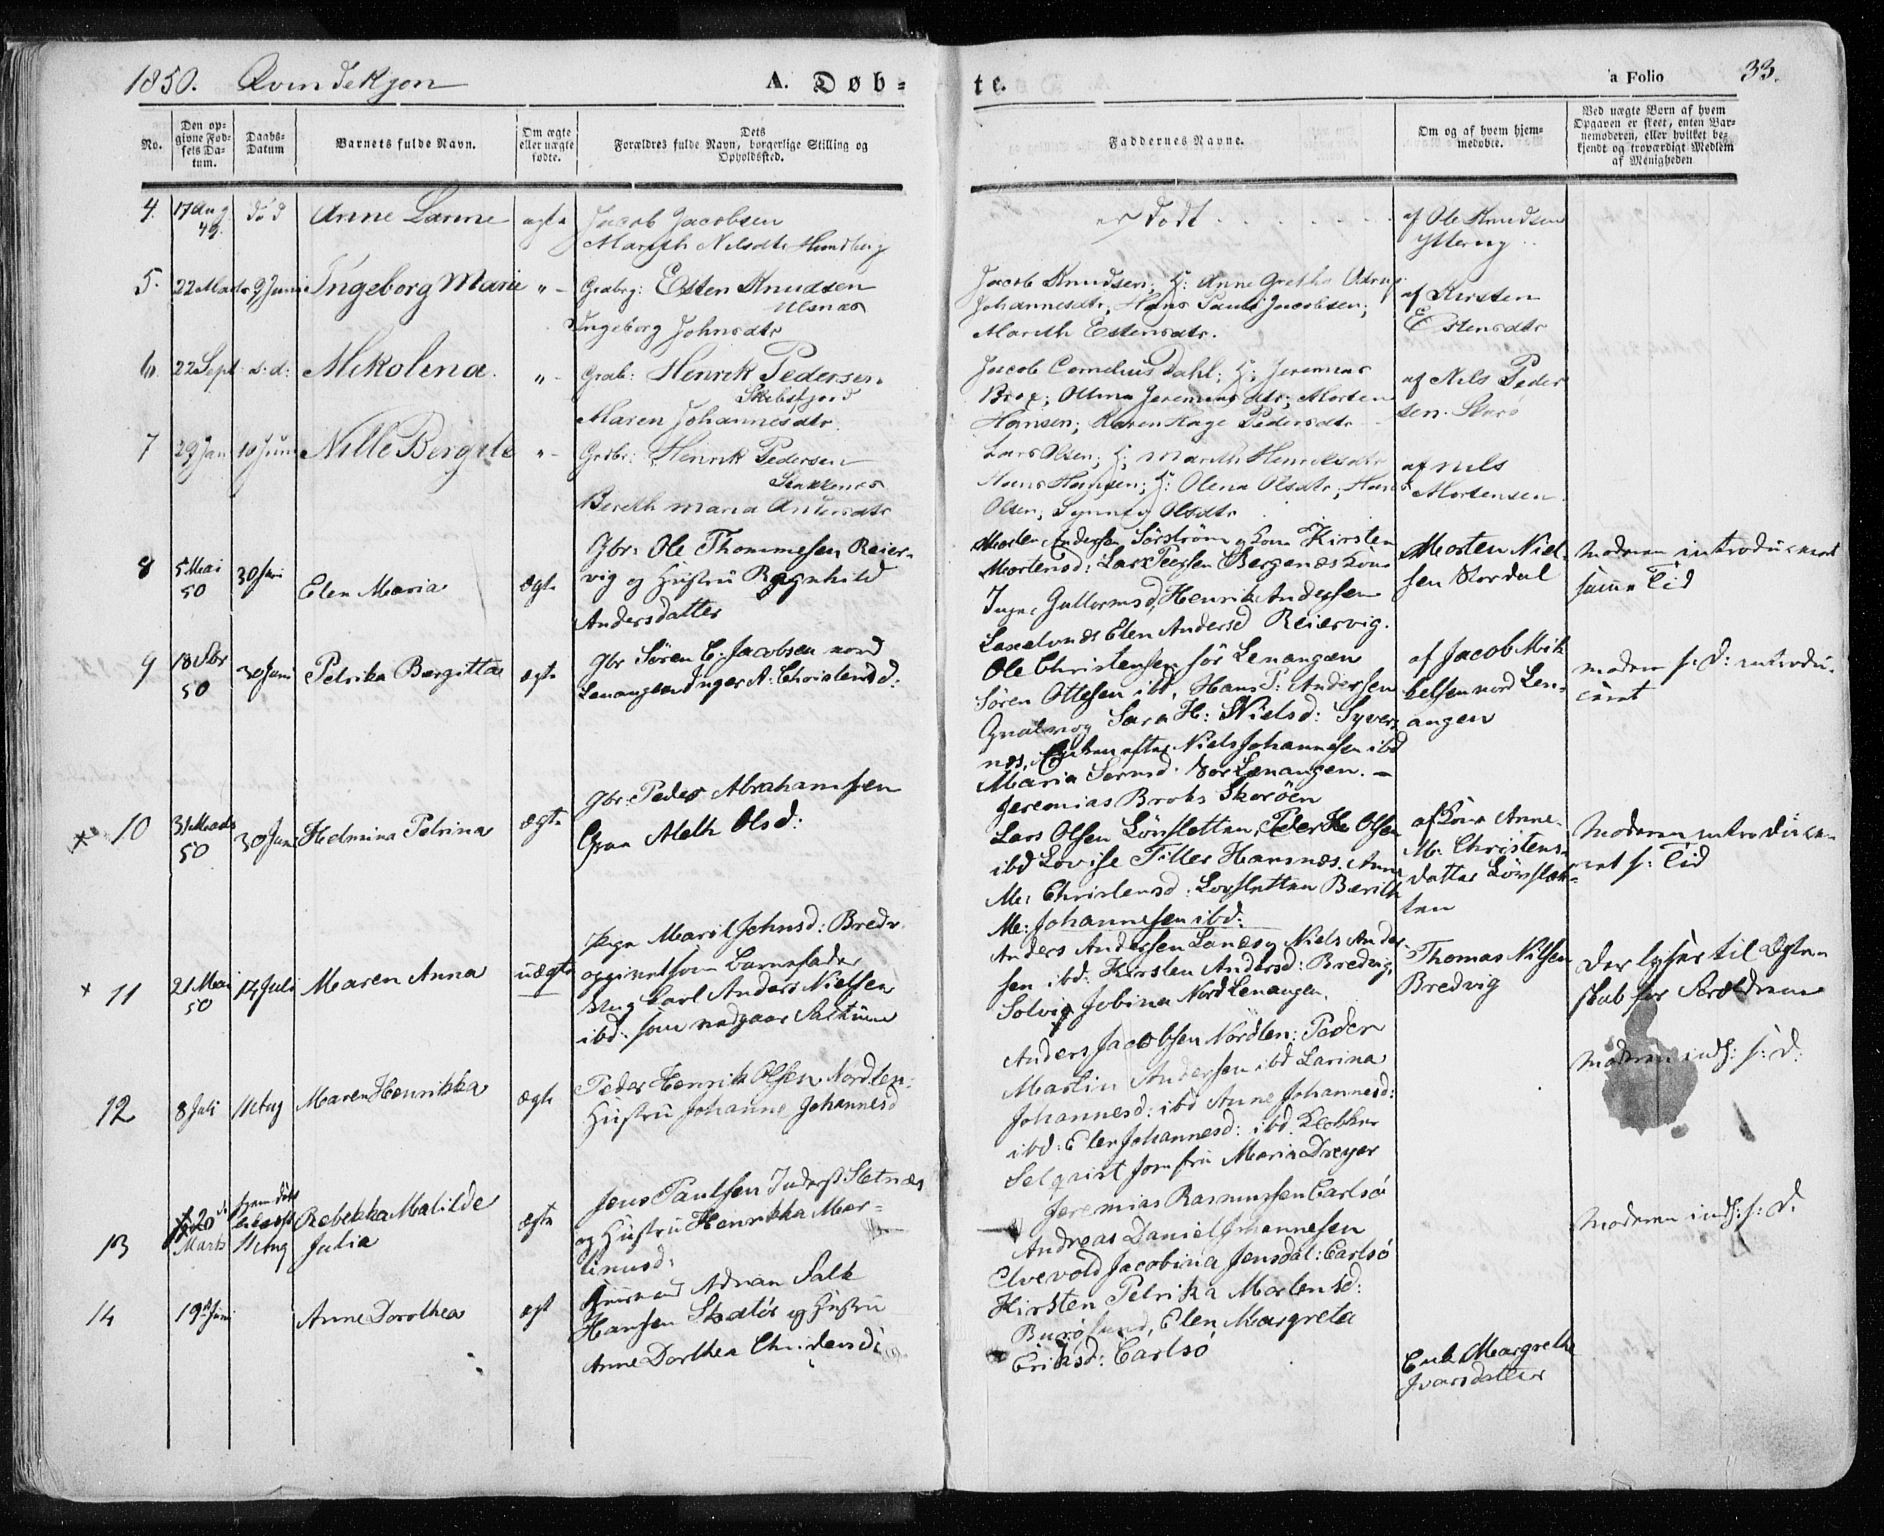 1850. Qvindekjøn
A. Døb-
te.
a Folio 33.
No.
Den op-
givne Fød-
sels Da-
tum.
Daabs-
Datum
Barnets fulde Navn.
Om ægte
eller uægte
fødte.
Dets
Forældres fulde Navn, borgerlige Stilling og
Opholdssted.
Faddernes Navne.
Om og af hvem hjem-
medøbte.
Ved uægte Børn af hvem
Opgaven er skeet, enten Bar-
nemoderen, eller hvilket be-
kjendt og troværdigt Medlem
af Menigheden
4. 17 Aug 49. død Anne Lamine ægte
Jacob Jacobsen
Mareth Nilsdtr
er Født
af Ole Knudsen
Ytterny
5. 22 Marts 9 Juni Ingeborg Marie "
Grabrg: Esten Knudsen
Ulsnæs
Ingeborg Johnsdtr
Jacob Knudsen; H: Anne Grethe
Johannesdtr, Hans Paul Jacobsen;
Mareth Estensdtr.
af Kirsten
Estensdtr
6. 22 Sept s: d: Nikolena. "
Grab: Henrik Pedersen
Skibsfjord
Maren Johannesdtr.
Jacob Cornelius Dahl; H: Jeremias
Brox; Ollina Jeremiasdtr; Morten
Hansen; Karen Hage Pedersdtr
af Nils Peder
sen. Skarø
7 29 Jan 10 Juni Nille Bergite "
Grdbr: Henrik Pedersen
Stakkenes
Bereth Maria Andersdtr
Lars Olsen; H: Mareth Henriksdtr
Hans Hansen; H: Olena Olsdtr; Hans
Olsen; Synnev Olsdtr
af Nils
Mortensen
8 5 Mai 50 30 Juni Elen Maria ægte
Gbr: Ole Thommesen Reier-
vig og Hustru Ragnhild
Andersdatter
Morten Andersen Sörström og Kone Kirsten
Mortensd: Lars Peersen Bergenæs Kone
Inger Guttormsd, Henrik Andersen
Laxelvnæs Elen Andersd Reiervig.
Morten Niel
sen Stordal
Moderen introduceret
samme Tid
9 18 Febr 50 30 Juni Petrika Bergitta ægte
Gbr Sören C: Jacobsen nord
Lenangen Inger A: Christensd:
Ole Christensen sör Lenangen
Sören Ottesen ibd, Hans P: Andersen
Sara H: Nielsd: Syver
næs, Niels Johannesen ibd
Maria Sörensd. Sör Lenangen. —
af Jacob Mik
kelsen nord Len-
angen
moderen s: D: introdu-
ceret
10 31 Marts 50 30 Juni Helmina Petrina ægte
Gbr: Peder Abrahamsen
Graa Aleth Olsd:
Jeremias Broks Skoröen
Lars Olsen Lönsletten, Peder H Olsen
ibd Lovise Tiller Hansnæs. Anne
M: Christensd: Lovsletten Berith
M: Johannesen ibd:
af Kone Anne
M: Christens-
datter Lönslet-
ten
Moderen introduce-
ret s: Tid
11 21 Mai 50 14 Juli Maren Anna uægte
Pige Marit Johnsd: Bredv.
opgivet som Barnefader
Ung Carl Anders Nielsen
ibd: som vedgaar Factum
Anders Andersen Lanes, Niels Ander
sen ibd: Kirsten Andersd: Bredvig,
Solvig Jobina Nord Lenangen.
Thomas Nilsen
Bredvig
Der lyses til Ægte-
skab for Forældrene
12 8 Juli 11 Aug Maren Henrikka ægte
Peder Henrik Olsen. Nordlen:
Hustru Johanne Johannesd
Anders Jacobsen Nordlen: Peder
Martin Andersen ibd Larina
Johannesd: ibd Anne Johannesd:
ibd: Elen Johannesd: ibd. Klokker
Moderen inds: s: D:
13 20 Marts 11 Aug Rebekka Matilde
Julia ægte
Jens Paulsen Sletnæs
og Hustru Henrikka Mar-
tinusd:
Selqvist Jomfru Maria Dreyer
Jeremias Rasmussen Carlsö
Andreas Daniel Johannesen
Elvevold Jacobina Jensdat: Carlsö
Moderen inds: s: D.
14 19 Juni Anne Dorothea ægt
Huusmand Adrian Falk
Hansen Skatör og Hustru
Anne Dorthea Christensd:
Kirsten Petrika Mortensd:
Burösund, Elen Margreta
Eriksd: Carlsö
Margrethe
Ivarsdatter